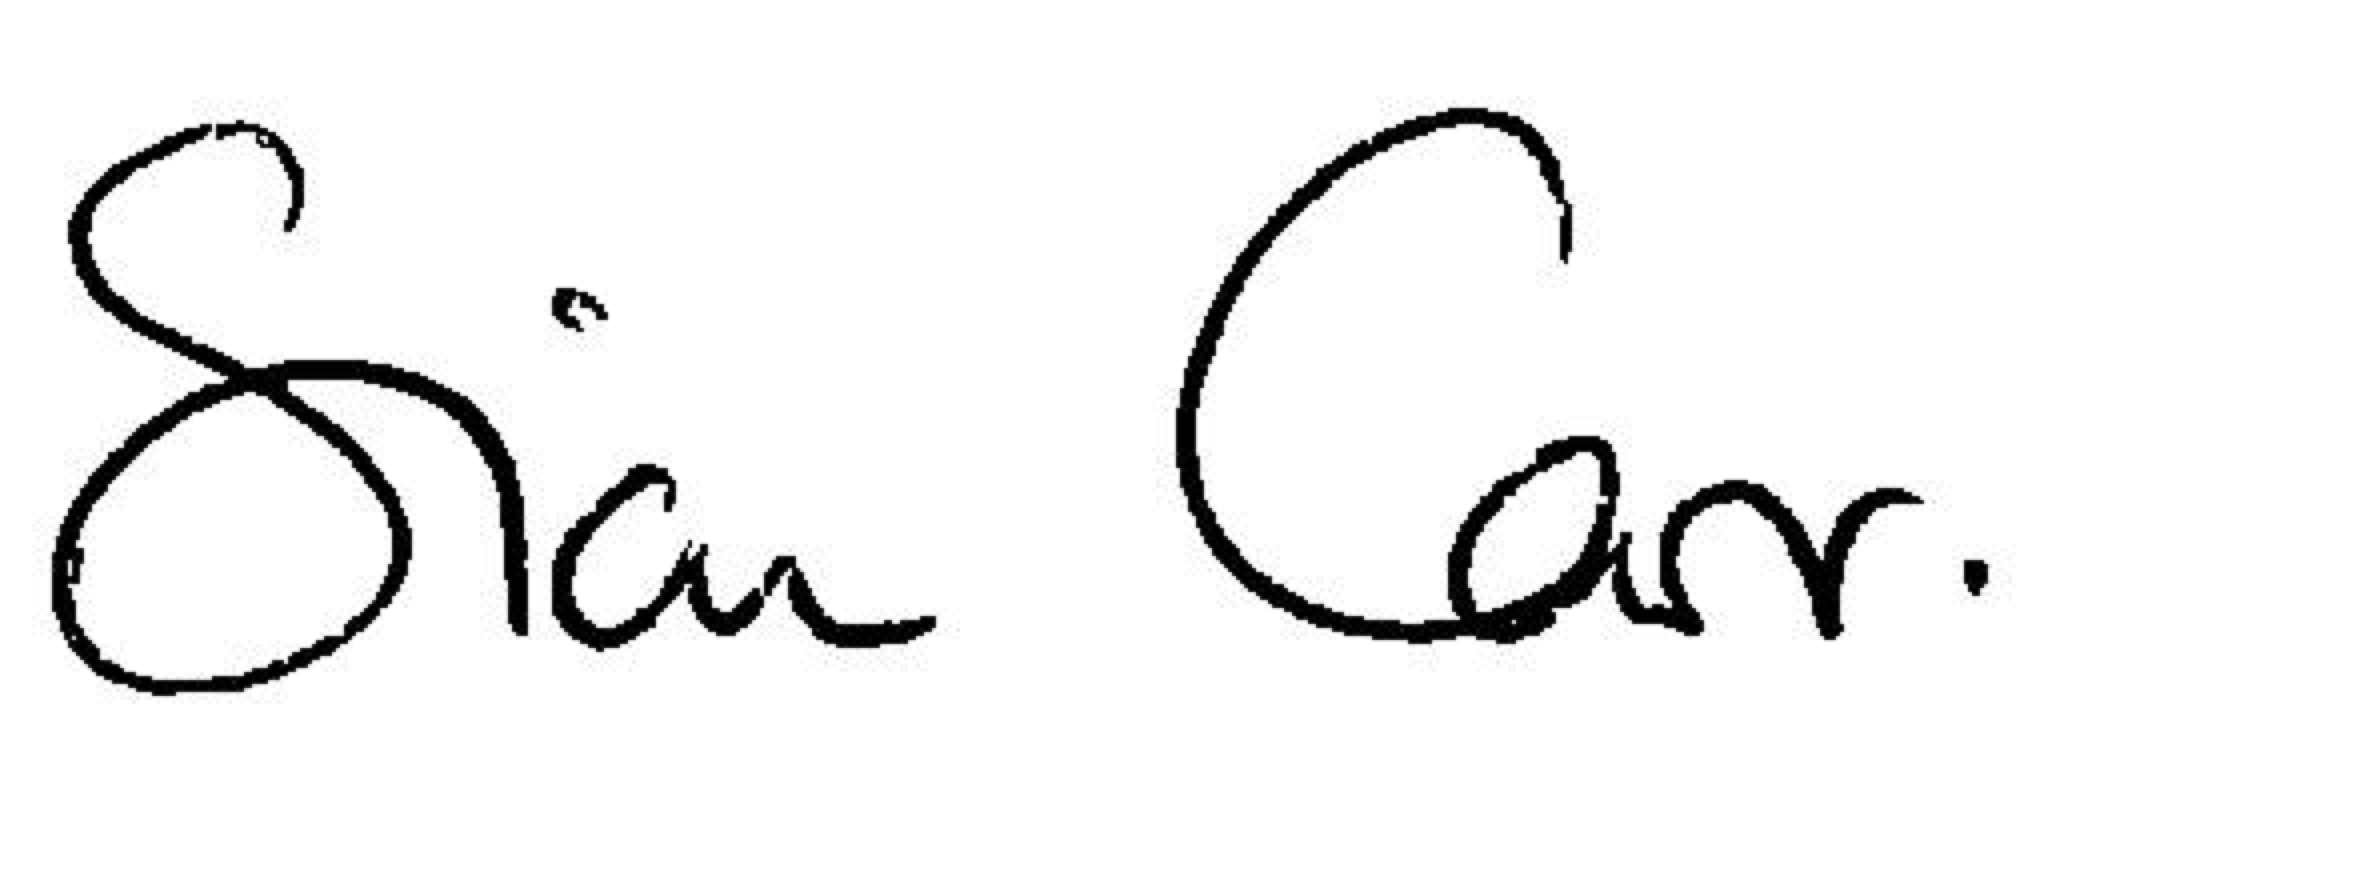 Sian Carr.